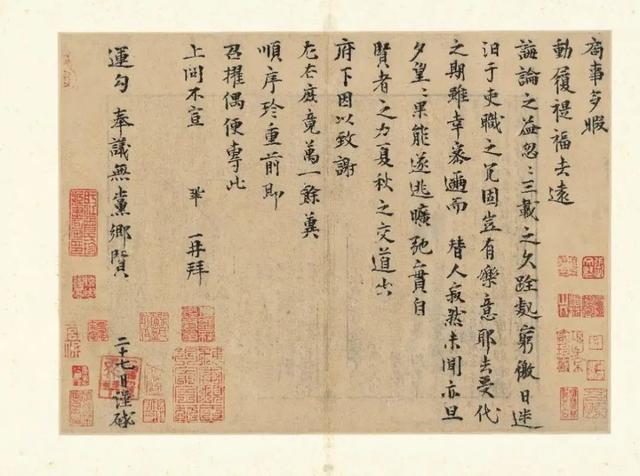 局事多暇
動履禔福去遠
誨論之益忽〻三載之久跧處窮徼日迷
汩于吏職之冗固豈有樂意耶去受代
之期雖幸密邇而 替人寂然未聞亦旦
夕望〻果能遂逃曠弛之責自
賢者之力夏秋之交道出
府下因以致謝
左右庶竟萬一餘冀
順序珍重前即
召擢偶便專此
上問不宣 鞏 再拜
運勾 奉議無黨鄉賢
二十七日謹啟